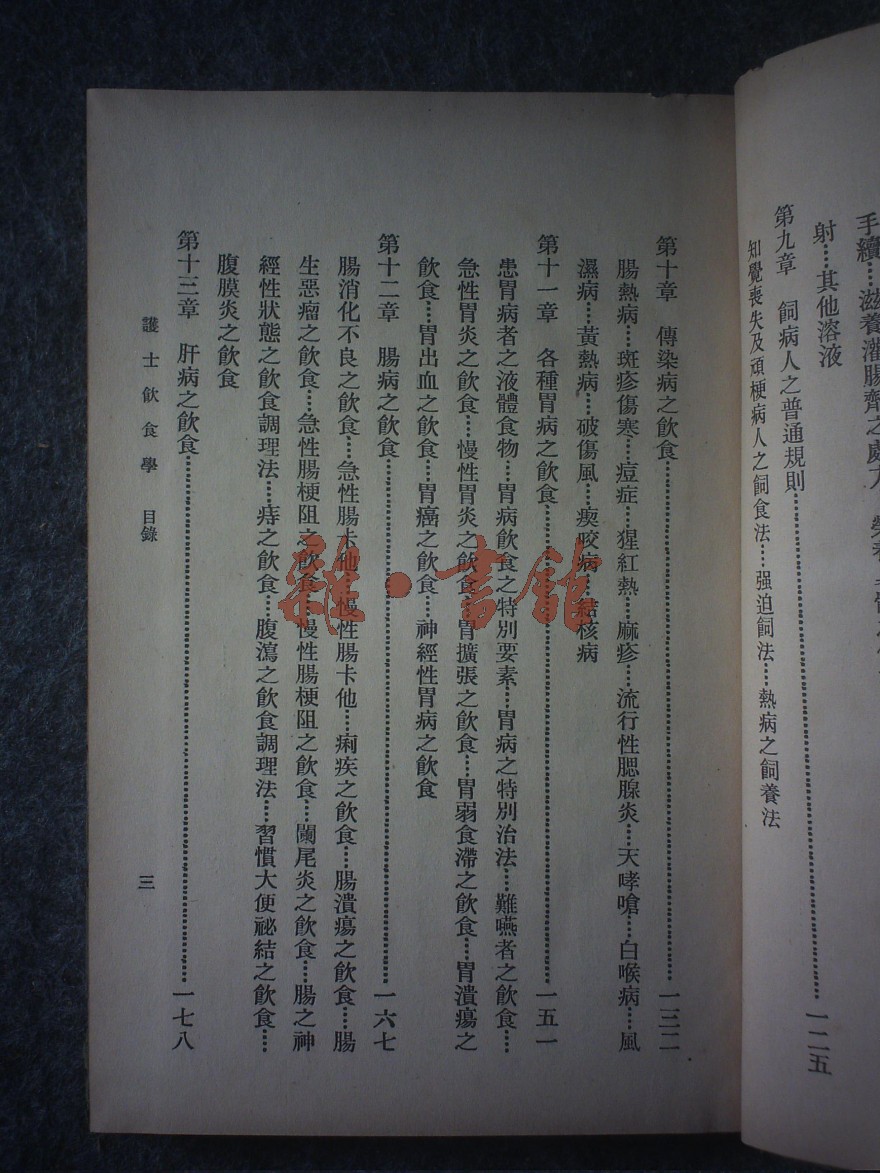 手續……滋養灌腸劑之處方
射……其他溶液
第九章　飼病人之普通規則……一二五
知覺喪失及頑梗病人之飼食法……强迫飼法……熱病之飼養法
第十章　傳染病之飲食……一三二
腸熱病……斑疹傷寒……痘症……猩紅熱……麻疹……流行性腮腺炎……天哮嗆……白喉病……風
濕病……黃熱病……破傷風……瘈咬病……結核病
第十一章　各種胃病之飲食……一五一
患胃病者之液體食物……胃病飲食之特別要素……胃病之特別治法……難嚥者之飲食……
急性胃炎之飲食……慢性胃炎之飲食……胃擴張之飲食……胃弱食滯之飲食……胃潰瘍之
飲食……胃出血之飲食……胃癌之飲食……神經性胃病之飲食
第十二章　腸病之飲食……一六七
腸消化不良之飲食……急性腸卡他……慢性腸卡他……痢疾之飲食……腸潰瘍之飲食……腸
生惡瘤之飲食……急性腸梗阻之飲食……慢性腸梗阻之飲食……闌尾炎之飲食……腸之神
經性狀態之飲食調理法……痔之飲食……腹瀉之飲食調理法……習慣大便祕結之飲食……
腹膜炎之飲食
第十三章　肝病之飲食……一七八
護士飲食學　目錄
三
雜·書館